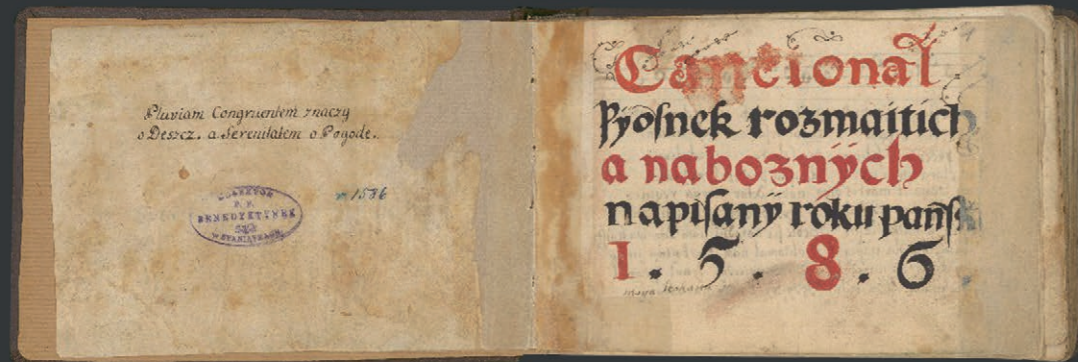 Pluviam Congruentem znaczy
o Deszcz. a Serenitatem o Pogodę.
KLASZTOR
P. P.
BENEDYKTYNEK
W STANIĄTKACH
r. 1586
Cancional
Pyosnek rozmaitich
a nabożnÿch
napiſanÿ róku pańſ
1. 5. 8. 6